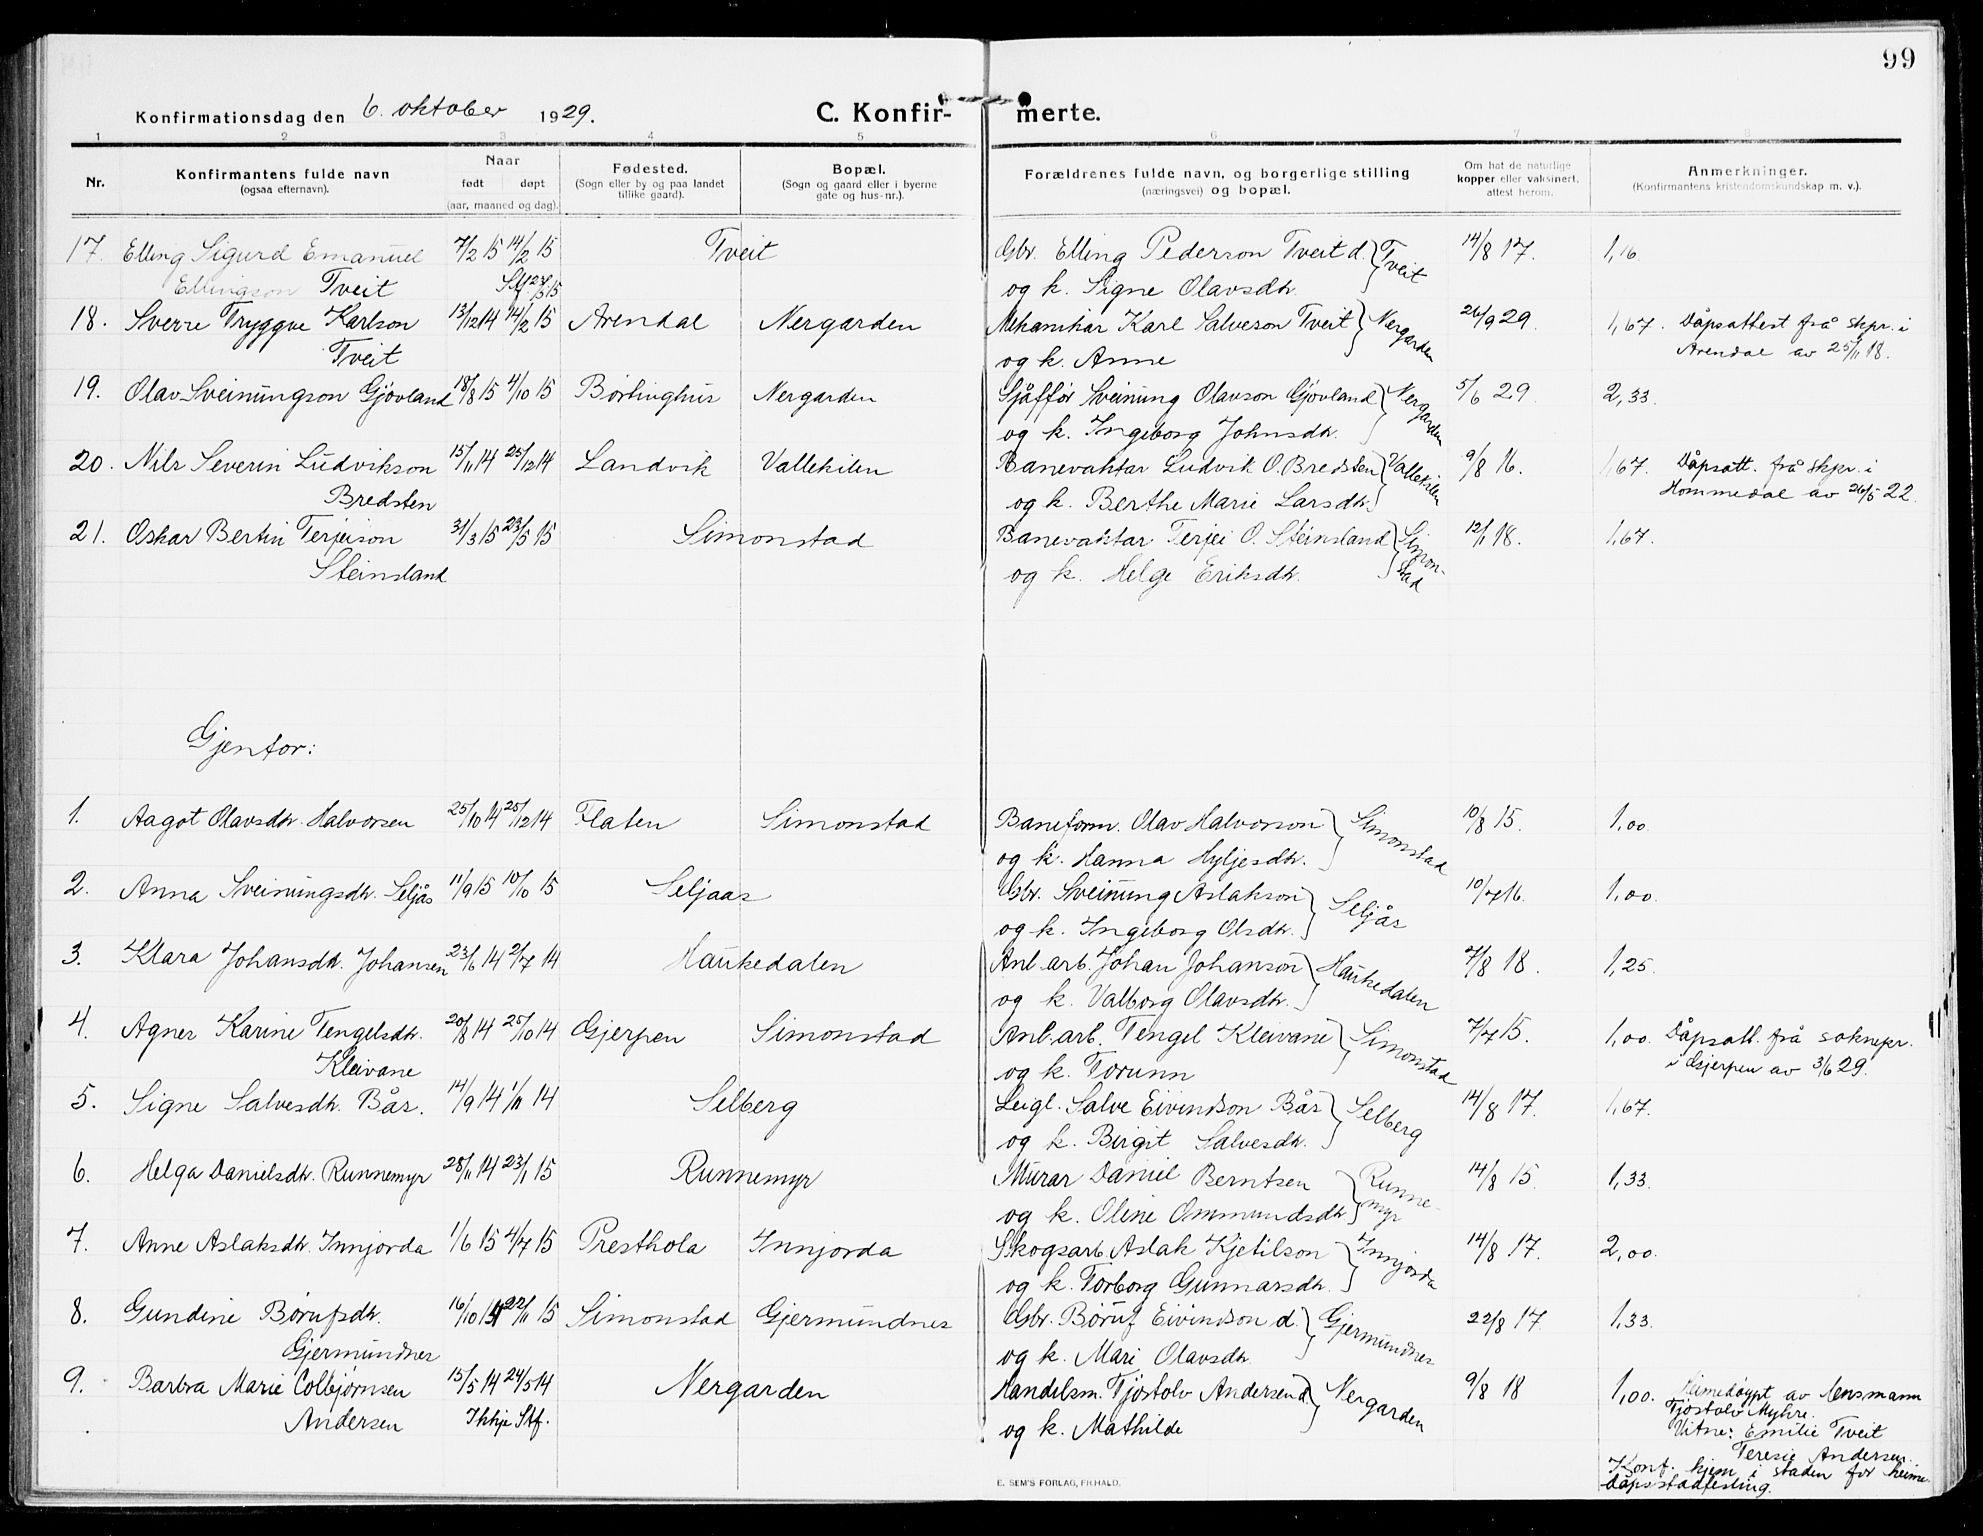 99
Konfirmationsdag den 6. oktober 1929. C. Konfir- merte.
1 2 3 4 5 6 7 8
Nr. Konfirmantens fulde navn (ogsaa efternavn). Naar født døpt (aar, maaned og dag). Fødested. (Sogn eller by og paa landet tillike gaard). Bopæl. (Sogn og gaard eller i byerne gate og hus-nr.). Forældrenes fulde navn, og borgerlige stilling (næringsvei) og bopæl. Om hat de naturlige kopper eller vaksinert, attest herom. Anmerkninger. (Konfirmantens kristendomskundskap m. v.).
17. Elling Sigurd Emanuel 7/2 15 14/2 15 Tveit Gbr. Elling Pederson Tveit d. } Tveit 14/8 17. 1,16.
Ellingson Tveit Stf. 23/5 15 og k. Signe Olavsdtr.
18. Sverre Tryggve Karlson 13/12 14 14/2 15 Arendal Nergarden Mekanikar Karl Salveson Tveit } Nergarden 26/9 29. 1,67. Dåpsattest frå skpr. i
Tveit og k. Anne Arendal av 25/11 18.
19. Olav Sveinungson Gjøvland 18/8 15 4/10 15 Børtinghus Nergarden Sjåffør Sveinung Olavson Gjøvland } Nergarden 5/6 29. 2,33.
og k. Ingeborg Johnsdtr.
20. Nils Severin Ludvikson 15/11 14 25/12 14 Landvik Vallekilen Banevaktar Ludvik O. Bredsten } Vallekilen 9/8 16. 1,67. Dåpsatt. frå skpr. i
Bredsten og k. Berthe Marie Larsdtr. Hommedal av 26/5 22.
21. Oskar Bertin Terjeison 31/3 15 23/5 15 Simonstad Banevaktar Terjei O. Steinsland } Simon-stad 12/1 18. 1,67.
Steinsland og k. Helge Eriksdtr.
Gjentor:
1. Aagot Olavsdtr. Halvorsen 25/10 14 25/12 14 Flaten Simonstad Baneform. Olav Halvorson } Simonstad 10/8 15. 1,00.
og k. Hanna Hyljesdtr.
2. Anna Sveinungsdtr. Seljås 11/9 15 10/10 15 Seljaas Gbr. Sveinung Aslakson } Seljås 10/7 16. 1,00.
og k. Ingeborg Olsdtr.
3. Klara Johansdtr. Johansen 23/6 14 2/7 14 Haukedalen Anl.arb. Johan Johanson } Haukedalen 7/8 18. 1,25.
og k. Valborg Olavsdtr.
4. Agnes Karine Tengelsdtr. 20/8 14 25/10 14 Gjerpen Simonstad Anl.arb. Tengel Kleivane } Simonstad 7/7 15. 1,00. Dåpsatt. frå soknepr.
Kleivane og k. Torunn i Gjerpen av 3/6 29.
5. Signe Salvesdtr. Bås. 14/9 14 1/11 14 Selberg Leigl. Salve Eivindson Bås } Selberg 14/8 17. 1,67.
og k. Birgit Salvesdtr.
6. Helga Danielsdtr. Runnemyr 28/11 14 23/1 15 Runnemyr Murar Daniel Berntsen } Runne-myr 14/8 15. 1,33.
og k. Oline Ommundsdtr.
7. Anne Aslaksdtr. Innjorda 1/6 15 4/7 15 Presthola Innjorda Skogsarb. Aslak Kjetilson } Innjorda 14/8 17. 2,00.
og k. Torborg Gunnarsdtr.
8. Gundine Børufsdtr. 16/10 14 22/11 15 Simonstad Gjermundnes Gbr. Børuf Eivindson d. } Gjermundnes 22/8 17. 1,33.
Gjermundnes og k. Mari Olavsdtr.
9. Barbra Marie Colbjørnsen 15/5 14 24/5 14 Nergarden Handelsm. Tjøstolv Andersen d. } Nergarden 9/8 18 1,00. Heimedøypt av lensmann
Andersen Ikkje Stf. og k. Mathilde Tjøstolv Myhre.
Vitne: Emilie Tveit
Teresie Andersen.
Konf. kjem i staden for heime-
dåpsstadfesting.
E. SEM'S FORLAG, FR.HALD.